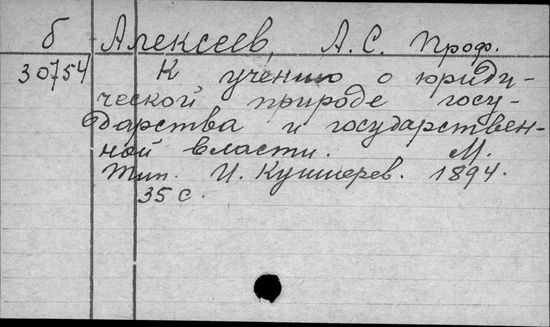 б Алексеев, А.С. Проф.
30754 К учению о юриди-
ческой природе госу-
дарства и государствен-
ной власти. М.
Тип. И. Кушнерев. 1894.
35 с.